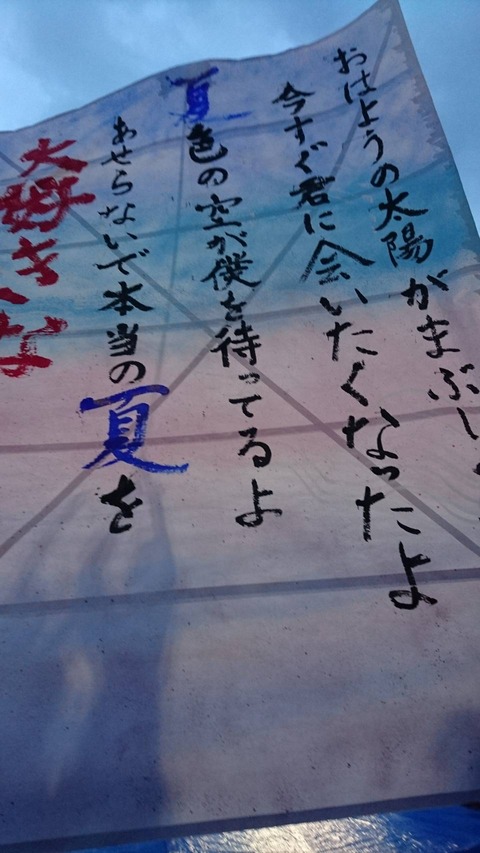 おはようの太陽がまぶし
今すぐ君に会いたくなったよ
夏色の空が僕を待ってるよ
あせらないで本当の夏を
大好きな